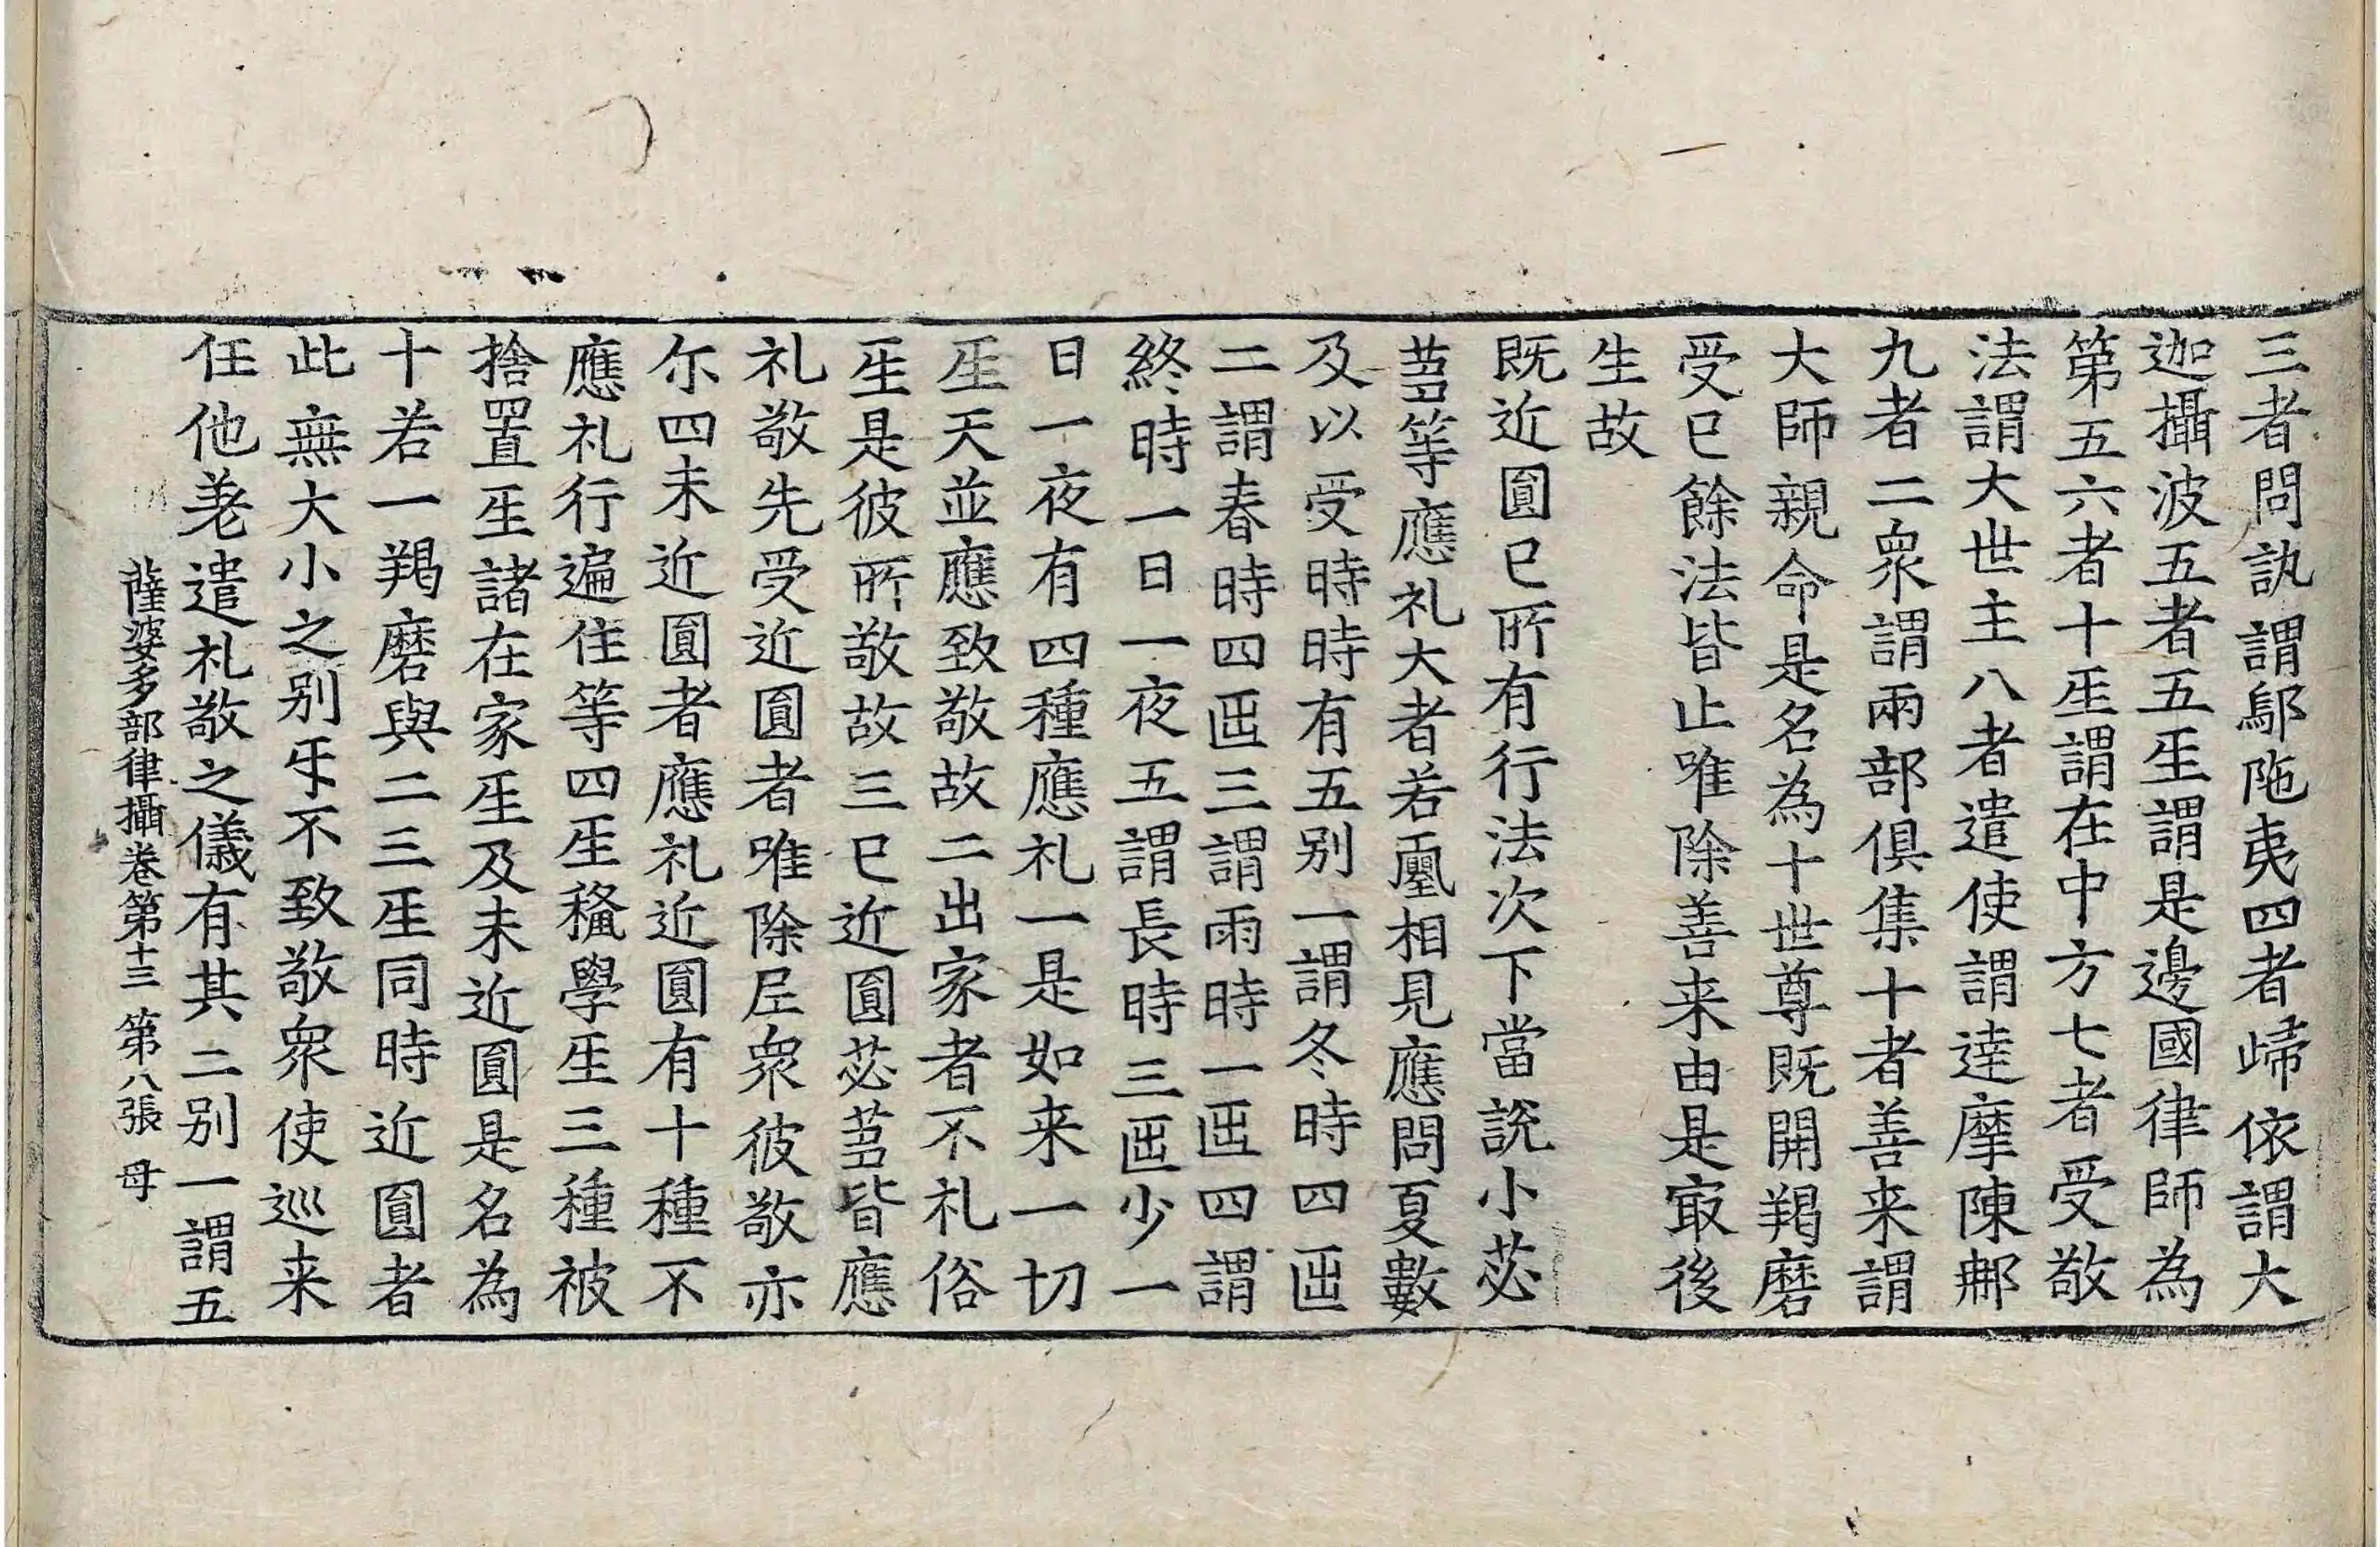 三者問訊謂鄔陁夷四者歸依謂大
迦攝波五者五𤯔謂是邊國律師為
第五六者十𤯔謂在中方七者受敬
法謂大世主八者遣使謂達摩陳䣯
九者二衆謂兩部俱集十者善来謂
大師親命是名為十世尊既開羯磨
受已餘法皆止唯除善来由是㝡後
生故
既近圎已所有行法次下當說小苾
芻等應礼大者若𡔈相見應問夏數
及以受時時有五别一謂冬時四𠥱
二謂春時四𠥱三謂雨時一𠥱四謂
終時一日一夜五謂長時三𠥱少一
日一夜有四種應礼一是如来一切
𤯔天並應致敬故二出家者不礼俗
𤯔是彼所敬故三已近圎苾芻皆應
礼敬先受近圎者唯除尼衆彼敬亦
尒四未近圎者應礼近圎有十種不
應礼行遍住等四𤯔種學𤯔三種被
捨置𤯔諸在家𤯔及未近圎是名為
十若一羯磨與二三𤯔同時近圎者
此無大小之别㸦不致敬衆使巡来
任他差遣礼敬之儀有其二别一謂五
薩婆多部律攝卷第十三 第八張 母